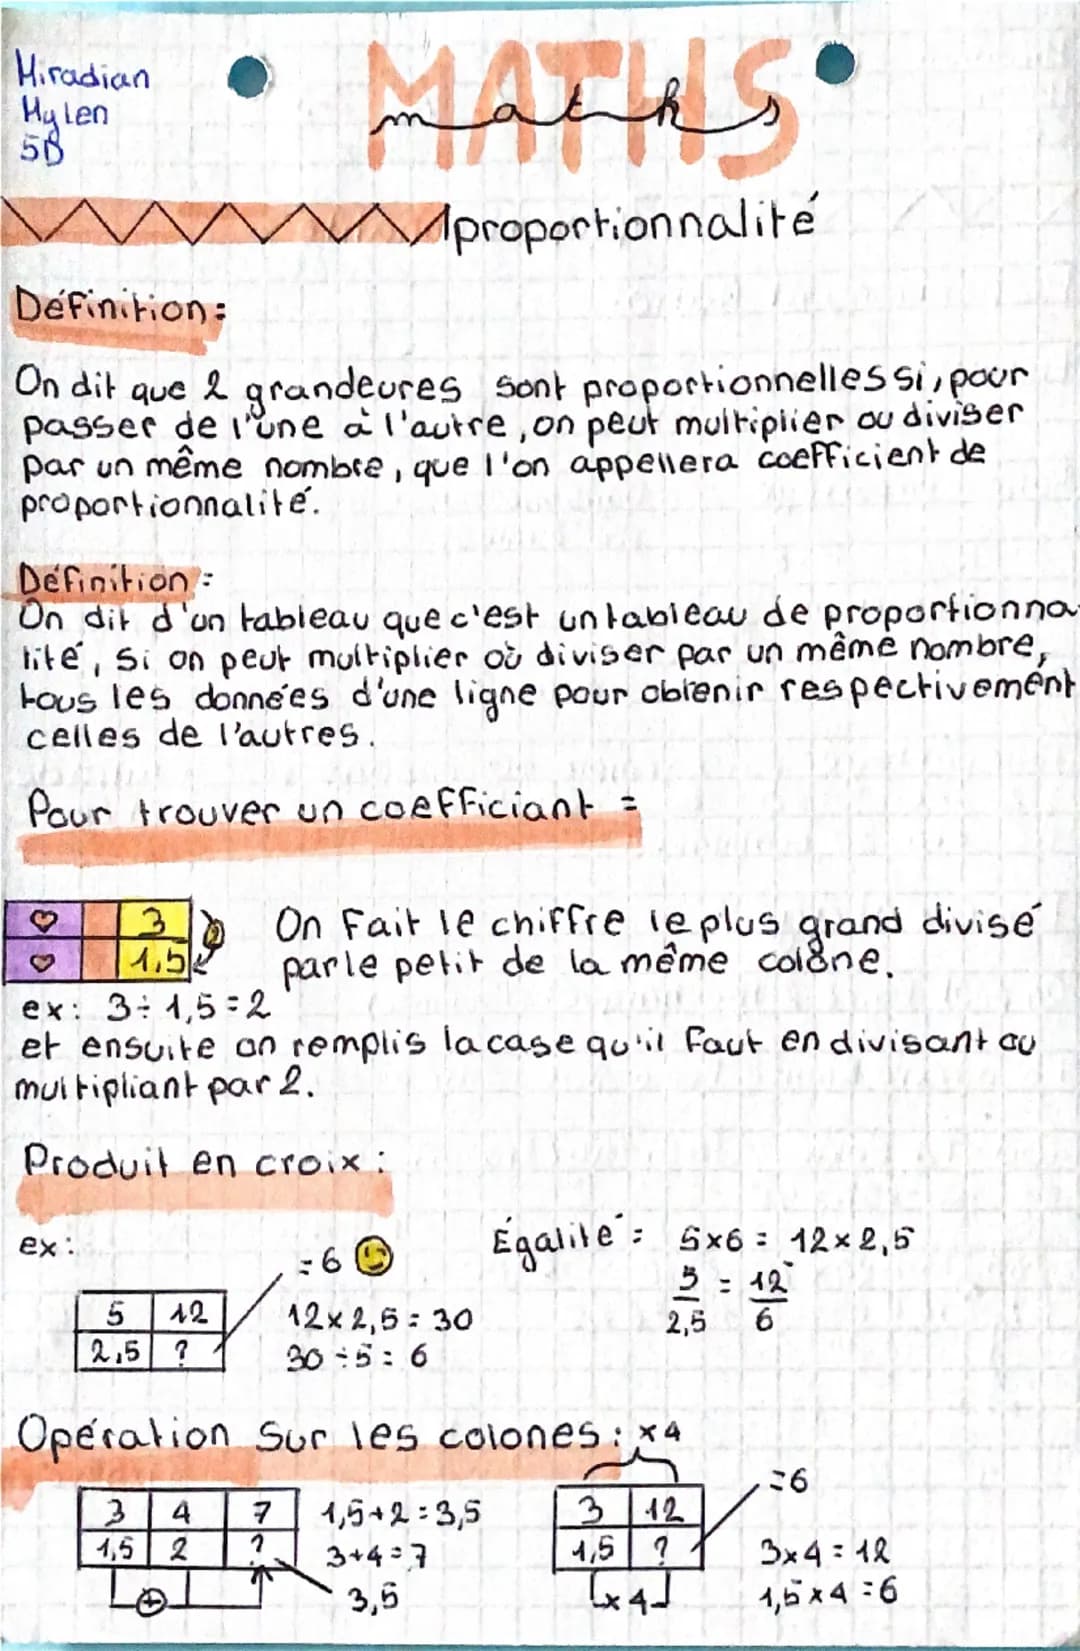 Miradian
Mylen
5B
MATHS
maths
proportionnalité
Définition :
On dit que 2 grandeures sont proportionnelles si, pour
passer de l'une à l'autre, on peut multiplier ou diviser
par un même nombre, que l'on appellera coefficient de
proportionnalité.
Définition :
On dit d'un tableau que c'est un tableau de proportionna-
lité, si on peut multiplier où diviser par un même nombre,
tous les données d'une ligne pour obtenir respectivement
celles de l'autres.
Pour trouver un coefficiant =
3
1,5
2
On fait le chiffre le plus grand divisé
par le petit de la même colone.
ex: 3÷1,5=2
et ensuite on remplis la case qu'il faut en divisant ou
multipliant par 2.
Produit en croix :
ex :
=6
5 12
2,5 ?
12×2,5 = 30
30÷5 = 6
Égalité : 5×6 = 12×2,5
5 = 12
2,5 6
Opération sur les colones : ×4
3 4 7
1,5 2 ?
+
1,5+2=3,5
3+4=7
3,5
3 12
1,5 ?
×4
=6
3×4=12
1,5×4=6